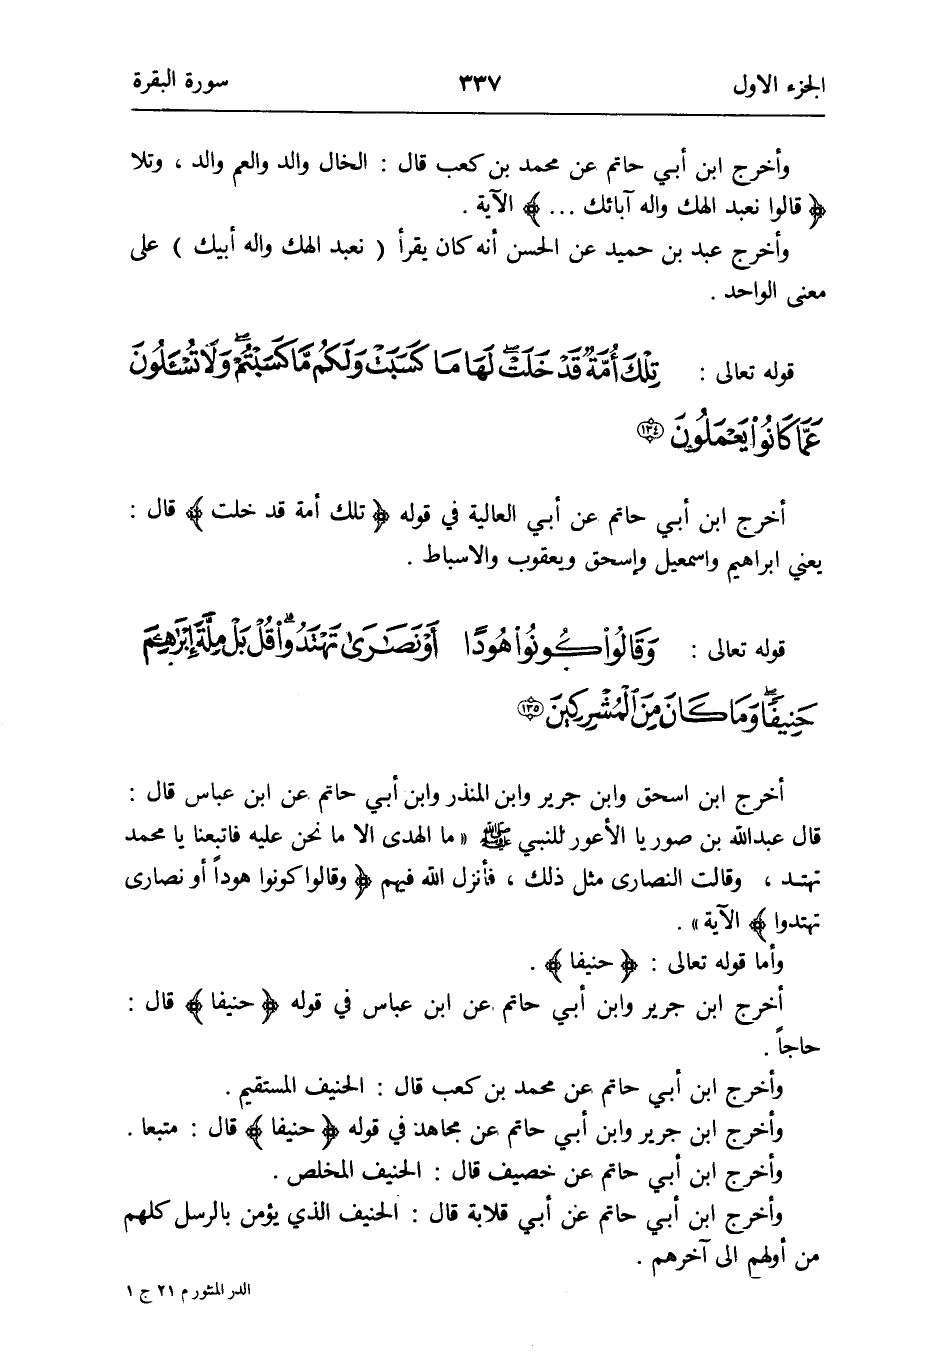 الجزء الاول ٣٣٧ سورة البقرة
وأخرج ابن أبي حاتم عن محمد بن كعب قال : الخال والد والعم والد ، وتلا
﴿ قالوا نعبد الهك واله آبائك ... ﴾ الآية .
وأخرج عبد بن حميد عن الحسن أنه كان يقرأ ( نعبد الهك واله أبيك ) على
معنى الواحد .
قوله تعالى : تِلْكَ أُمَّةٌ قَدْ خَلَتْ ۖ لَهَا مَا كَسَبَتْ وَلَكُم مَّا كَسَبْتُمْ ۖ وَلَا تُسْـَٔلُونَ
عَمَّا كَانُوا۟ يَعْمَلُونَ ١٣٤
أخرج ابن أبي حاتم عن أبي العالية في قوله ﴿ تلك أمة قد خلت ﴾ قال :
يعني ابراهيم واسمعيل وإسحق ويعقوب والاسباط .
قوله تعالى : وَقَالُوا۟ كُونُوا۟ هُودًا أَوْ نَصَـٰرَىٰ تَهْتَدُوا۟ ۗ قُلْ بَلْ مِلَّةَ إِبْرَٰهِـۧمَ
حَنِيفًا ۖ وَمَا كَانَ مِنَ ٱلْمُشْرِكِينَ ١٣٥
أخرج ابن اسحق وابن جرير وابن المنذر وابن أبي حاتم عن ابن عباس قال :
قال عبدالله بن صوريا الأعور للنبي ﷺ « ما الهدى الا ما نحن عليه فاتبعنا يا محمد
تهتد ، وقالت النصارى مثل ذلك ، فأنزل الله فيهم ﴿ وقالوا كونوا هوداً أو نصارى
تهتدوا ﴾ الآية » .
وأما قوله تعالى : ﴿ حنيفا ﴾ .
أخرج ابن جرير وابن أبي حاتم عن ابن عباس في قوله ﴿ حنيفا ﴾ قال :
حاجاً .
وأخرج ابن أبي حاتم عن محمد بن كعب قال : الحنيف المستقيم .
وأخرج ابن جرير وابن أبي حاتم عن مجاهد في قوله ﴿ حنيفا ﴾ قال : متبعا .
وأخرج ابن أبي حاتم عن خصيف قال : الحنيف المخلص .
وأخرج ابن أبي حاتم عن أبي قلابة قال : الحنيف الذي يؤمن بالرسل كلهم
من أولهم الى آخرهم .
الدر المنثور م ٢١ ج ١